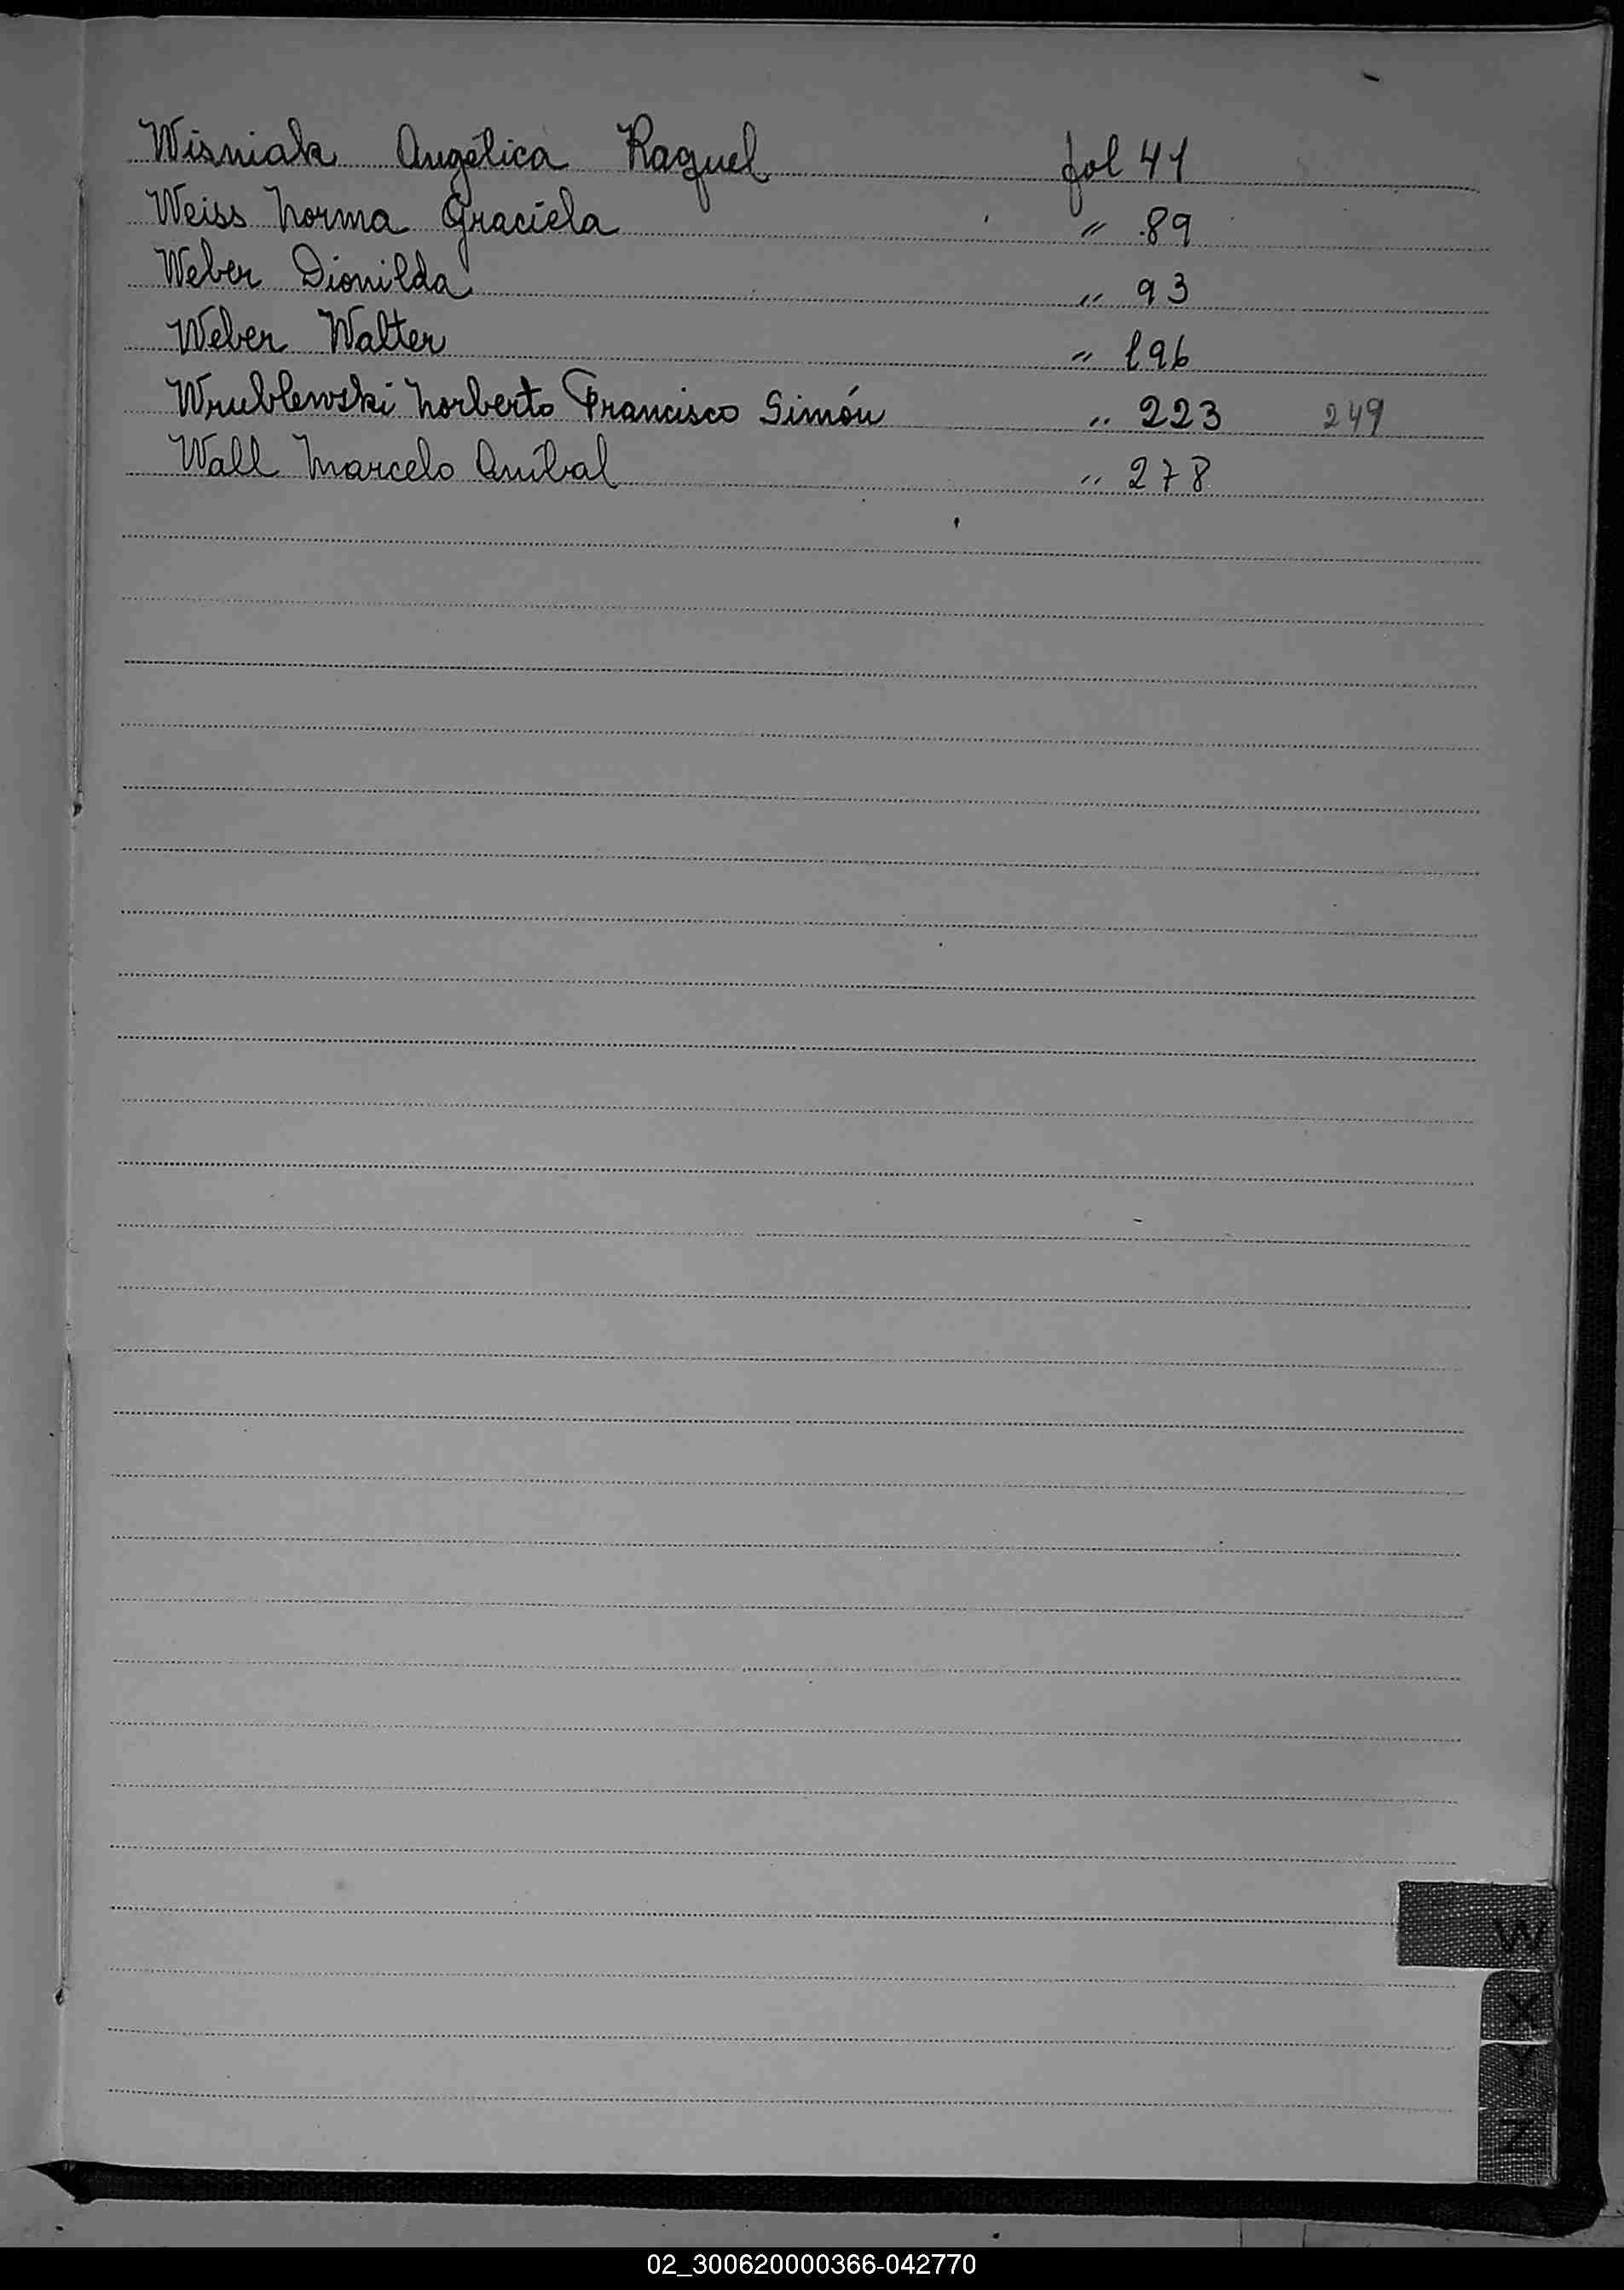 Wisniak Angélica Raquel fol 41
Weiss Norma Graciela " 89
Weber Dionilda " 93
Weber Walter " 196
Wrublewski Norberto Francisco Simón " 223 249
Wall Marcelo Aníbal " 278
W
X
Y
Z
02_300620000366-042770